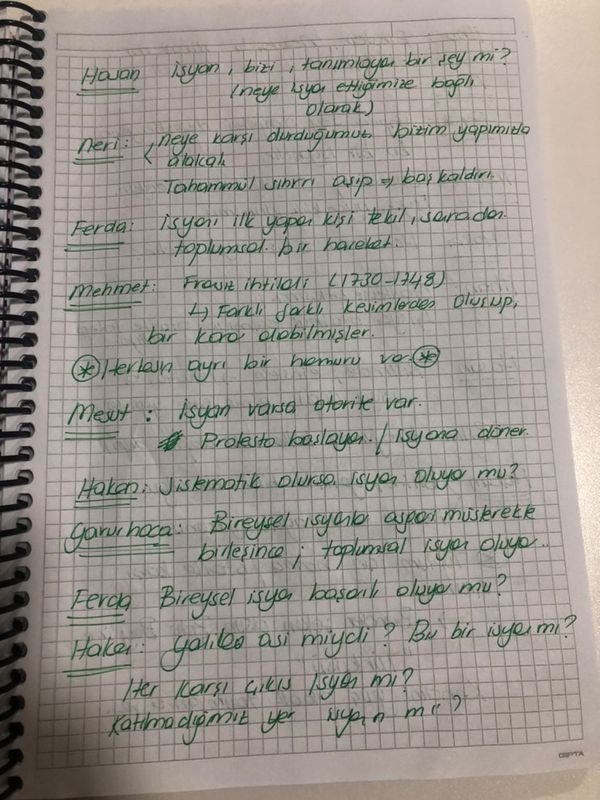 Hasan isyan, bizi, tanımlayan bir şey mi?
(neye isyan ettiğimize bağlı
olarak)
Neri: neye karşı durduğumuz bizim yapımızla
alakalı
Tahammül sınırı aşıp ⇒ başkaldırı.
Ferda: isyanı ilk yapan kişi tekil, sonradan
toplumsal bir hareket.
Mehmet: Fransız ihtilali (1730-1748)
↳ Farklı farklı kesimlerden oluşup,
bir koro olabilmişler.
* Herkesin ayrı bir hamuru var *
Mesut: isyan varsa otorite var.
Protesto başlayan / isyana döner.
Hakan: Sistematik olursa isyan oluyo mu?
hoca: Bireysel isyanla asgari müşterekte
birleşince; toplumsal isyan oluyo..
Ferda Bireysel isyan başarılı oluyo mu?
Hakan: Galileo asi miydi? Bu bir isyan mı?
Her karşı çıkış isyan mı?
Katılmadığımız yer isyan mı?
GIPTA